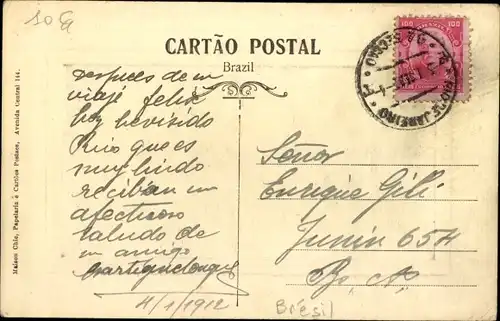 CARTÃO POSTAL
Brazil
100 100
RIO DE JANEIRO
Maison Chic, Papelaria é Cartões Postaes, Avenida Central 144.
Despues de un
viaje feliz
he venido
Rio que es
muy lindo
reciban un
afectuoso
saludo de
un amigo
4/1/1912
Señor
Enrique Gili
Junin 654
Bs. As.
Brésil